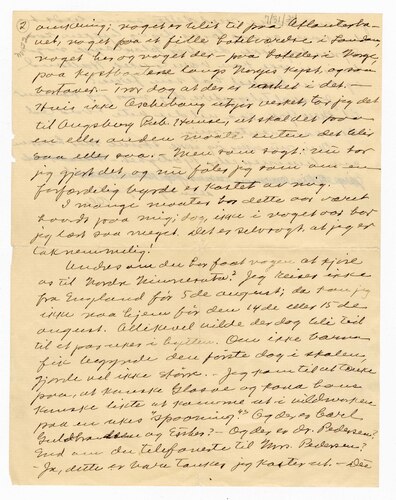 omkring; noget er blit til paa Atlanterha-
vet, noget paa et lille hotelværelse i London,
noget her og noget der – paa hoteller i Norge,
paa kystbaatene langs Norges kyst, og saa
bortover. – tror dog at der er enhed i det. –
Hvis ikke Aschehoug utgir verket, tar jeg det
til Augsburg Pub. House, ut skal det paa
en eller anden maate enten det blir
saa eller saa. Men som sagt: nu har
jeg gjort det, og nu føles jeg som om en
forfærdelig byrde er kastet av mig.
I mange maater har dette aar været
haardt paa mig; dog, ikke i noget aar har
jeg læst saa meget. Det er selvsagt, at jeg er
taknemmelig!
Undres om du har faat vogn at kjøre
os til Nordre Minnesota? Jeg reiser ikke
fra England før 5de august; da kan jeg
ikke naa hjem før den 14de eller 15de
august. Allikevel vilde der dog bli tid
til et par uker i hytten. Om ikke barna
fik begynde den første dag i skolen,
gjorde vel ikke større. – Jeg kom til at tænke
paa, at kanske og hans
kanske likte at komme ut i vildmarken
paa en ukes "spooning"? Og der er Carl
og – Og der er dr. Pedersen?
End om du telefonerte til Mrs. Pedersen?
– Ja, dette er bare tanker jeg kaster ut. – Dee